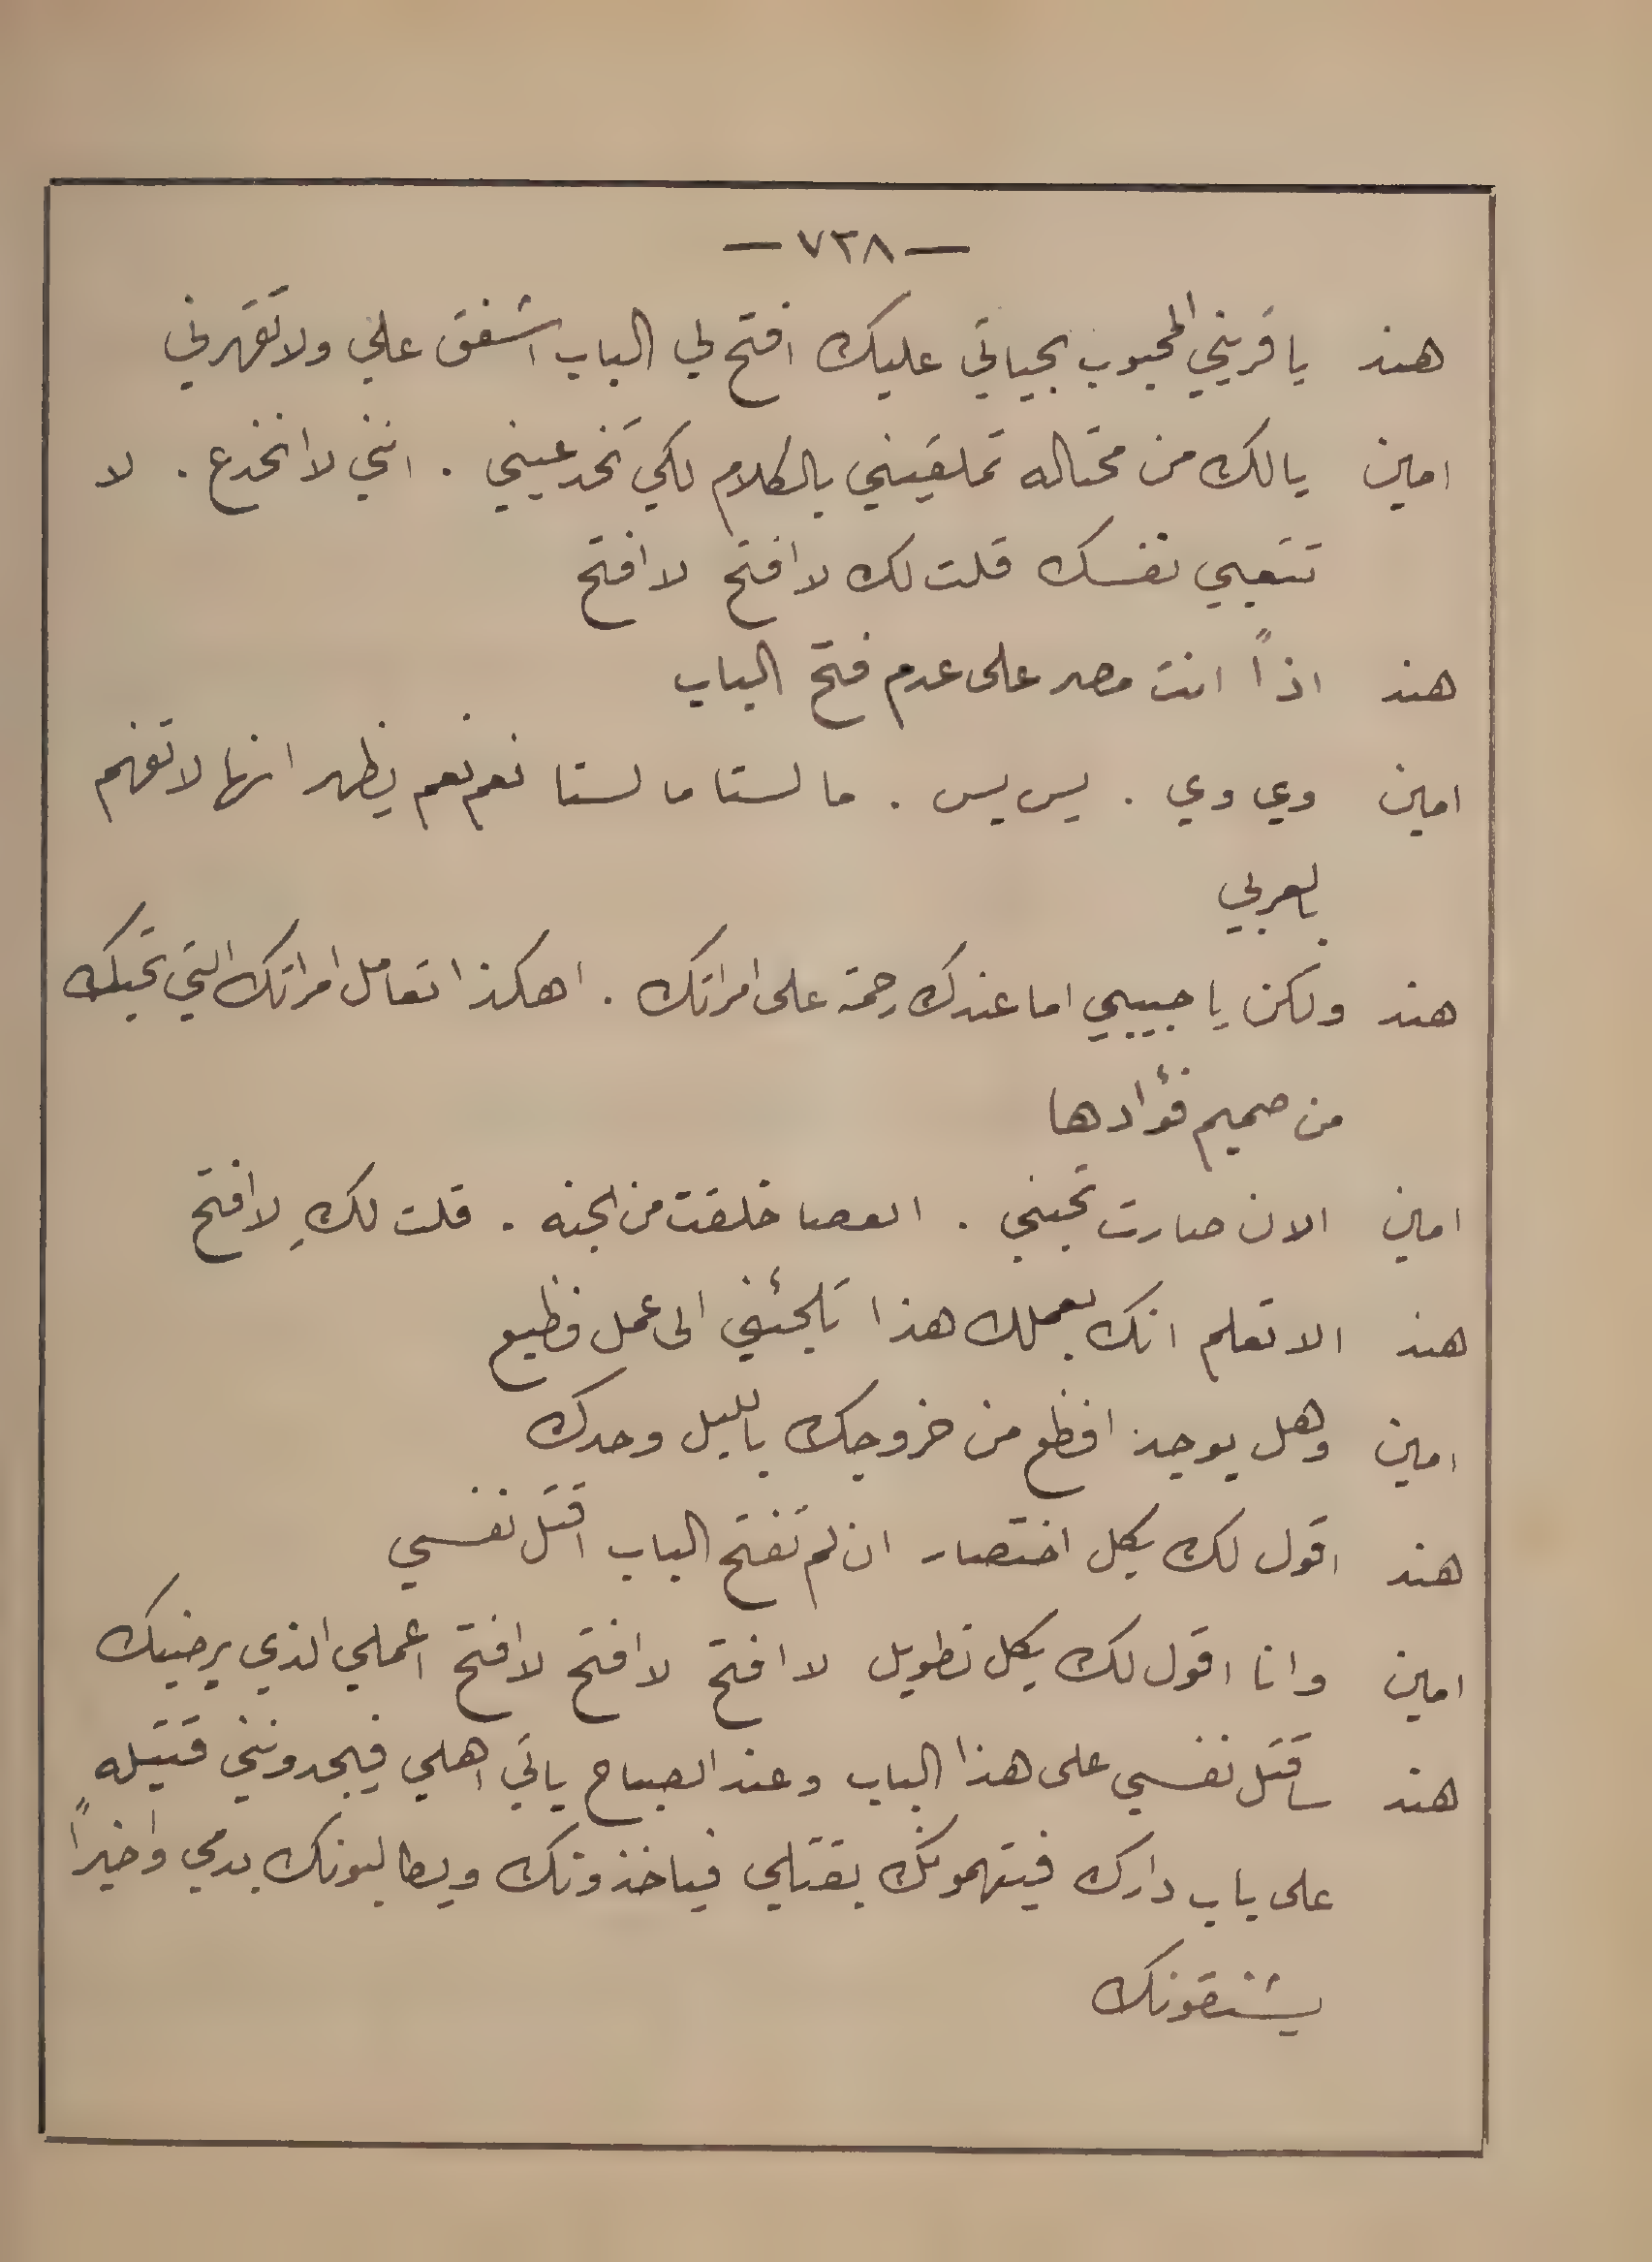 — ٧٣٨ —
هند يا قريني المحبوب بحياتي عليك افتح لي الباب اشفق علي ولا تقهرني
امين يالك من محتاله تملقيني بالكلام لكي تخدعيني . انني لا انخدع . لا
تتعبي نفسك قلت لك لا افتح لا افتح
هند اذاً انت مصر على عدم فتح الباب
امين وي وي . يس يس . مالستا مالستا نعم نعم يظهر انها لا تفهم
بالعربي
هند ولكن يا حبيبي اما عندك رحمة على امراتك . اهكذا تعامل امراتك التي تحبك
من صميم فؤادها
امين الان صارت تحبني . العصا خلقت من الجنه . قلت لكِ لا افتح
هند الا تعلم انك بعملك هذا تلجئني الى عمل فظيع
امين وهل يوجد افظع من خروجك بالليل وحدك
هند اقول لك بكل اختصار ان لم تفتح الباب اقتل نفسي
امين وانا اقول لك بكل تطويل لا افتح لا افتح لا افتح اعملي الذي يرضيك
هند ساقتل نفسي على هذا الباب وعند الصباح ياتي اهلي فيجدونني قتيله
على باب دارك فيتهمونك بقتلي فياخذونك ويطالبونك بدمي واخيراً
يشنقونك